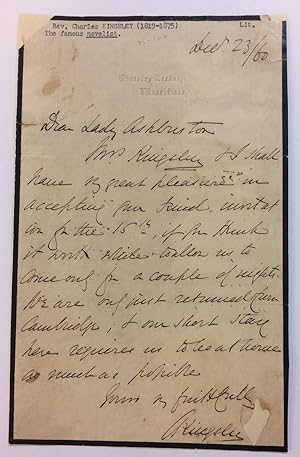 Rev. Charles KINGSLEY (1819-1875) Lit.
The famous novelist.
Dec 23/60
Eversley Rectory
Winchfield
Dear Lady Ashburton
Mrs Kingsley & I shall
have very great pleasure in
accepting your kind invitat
ion for the 15th, if you think
it worth while to allow us to
come only for a couple of nights.
We are only just returned from
Cambridge, & our short stay
here requires us to be at home
as much as possible
Yours very faithfully
CKingsley